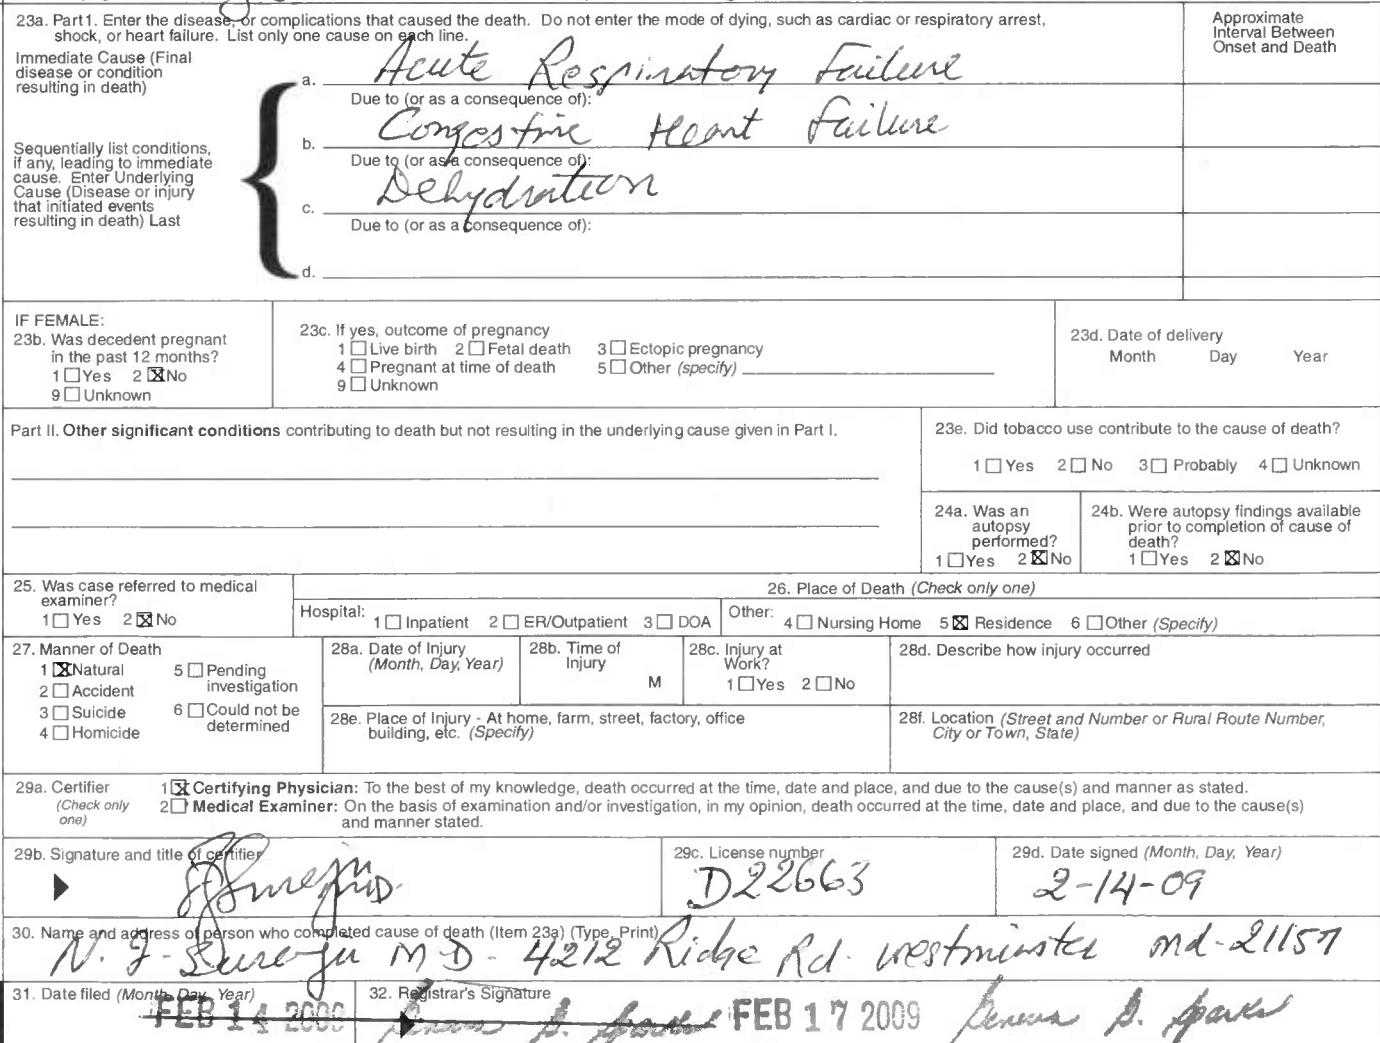 23a. Part1. Enter the disease, or complications that caused the death. Do not enter the mode of dying, such as cardiac or respiratory arrest,
shock, or heart failure. List only one cause on each line.
Approximate
Interval Between
Onset and Death
Immediate Cause (Final
disease or condition
resulting in death)
a. Acute Respiratory Failure
Due to (or as a consequence of):
b. Congestive Heart Failure
Sequentially list conditions,
if any, leading to immediate
cause. Enter Underlying
Cause (Disease or injury
that initiated events
resulting in death) Last
Due to (or as a consequence of):
c. Dehydration
Due to (or as a consequence of):
d.
IF FEMALE:
23b. Was decedent pregnant
in the past 12 months?
1 ☐ Yes 2 ☒ No
9 ☐ Unknown
23c. If yes, outcome of pregnancy
1 ☐ Live birth 2 ☐ Fetal death 3 ☐ Ectopic pregnancy
4 ☐ Pregnant at time of death 5 ☐ Other (specify)
9 ☐ Unknown
23d. Date of delivery
Month Day Year
Part II. Other significant conditions contributing to death but not resulting in the underlying cause given in Part I.
23e. Did tobacco use contribute to the cause of death?
1 ☐ Yes 2 ☐ No 3 ☐ Probably 4 ☐ Unknown
24a. Was an
autopsy
performed?
1 ☐ Yes 2 ☒ No
24b. Were autopsy findings available
prior to completion of cause of
death?
1 ☐ Yes 2 ☒ No
25. Was case referred to medical
examiner?
1 ☐ Yes 2 ☒ No
26. Place of Death (Check only one)
Hospital: 1 ☐ Inpatient 2 ☐ ER/Outpatient 3 ☐ DOA Other: 4 ☐ Nursing Home 5 ☒ Residence 6 ☐ Other (Specify)
27. Manner of Death
1 ☒ Natural 5 ☐ Pending
investigation
2 ☐ Accident
3 ☐ Suicide 6 ☐ Could not be
determined
4 ☐ Homicide
28a. Date of Injury
(Month, Day, Year)
28b. Time of
Injury
M
28c. Injury at
Work?
1 ☐ Yes 2 ☐ No
28d. Describe how injury occurred
28e. Place of Injury - At home, farm, street, factory, office
building, etc. (Specify)
28f. Location (Street and Number or Rural Route Number,
City or Town, State)
29a. Certifier
(Check only
one)
1 ☒ Certifying Physician: To the best of my knowledge, death occurred at the time, date and place, and due to the cause(s) and manner as stated.
2 ☐ Medical Examiner: On the basis of examination and/or investigation, in my opinion, death occurred at the time, date and place, and due to the cause(s)
and manner stated.
29b. Signature and title of certifier
MD.
29c. License number
D22663
29d. Date signed (Month, Day, Year)
2-14-09
30. Name and address of person who completed cause of death (Item 23a) (Type, Print)
N. J- MD- 4212 Ridge Rd. Westminster md-21157
31. Date filed (Month, Day, Year)
FEB 14 2009
32. Registrar's Signature
FEB 17 2009 Geneva S. Sparks